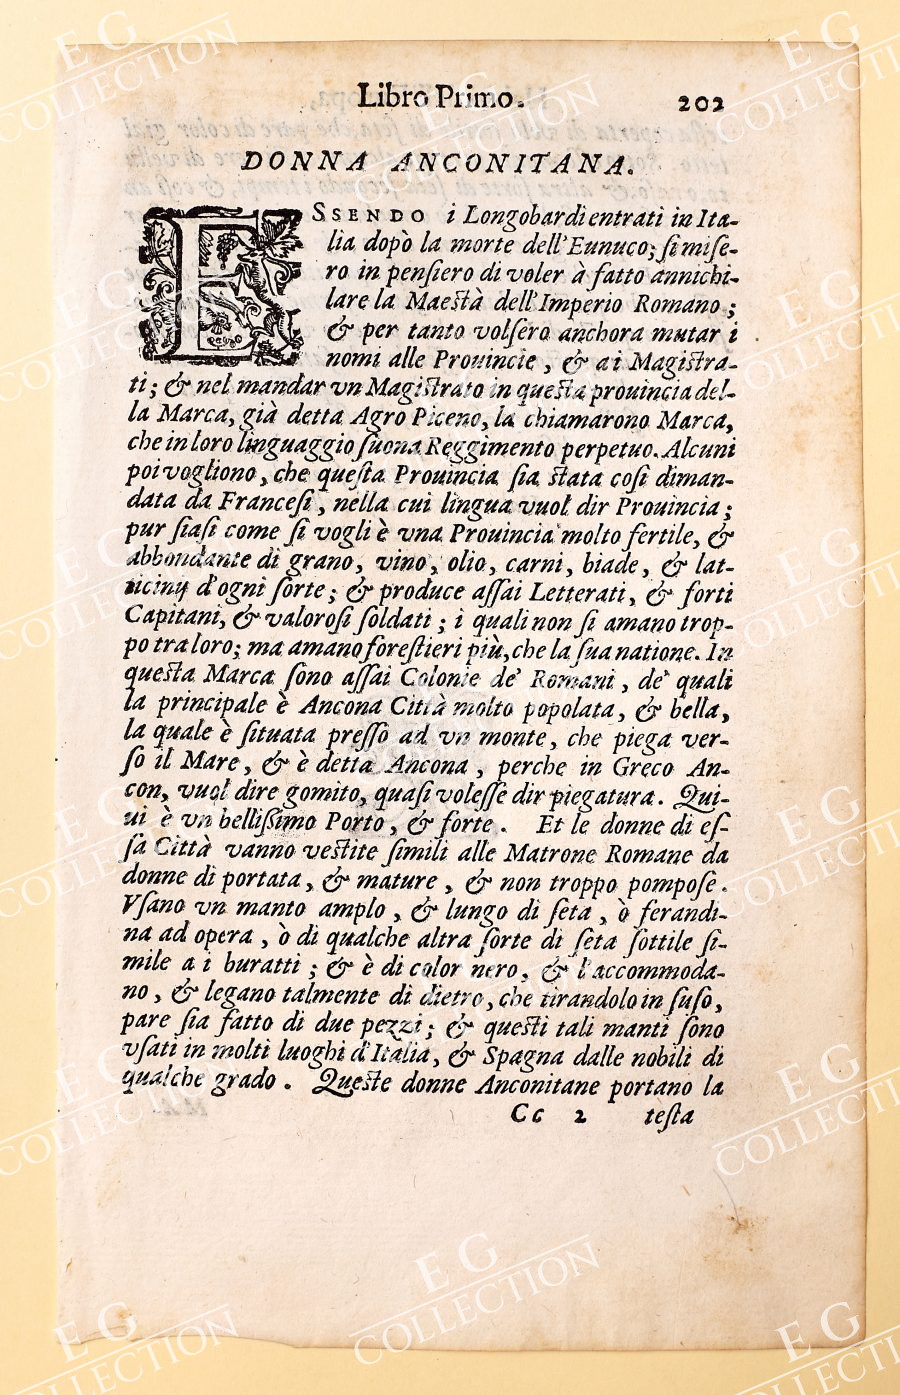 Libro Primo. 202
DONNA ANCONITANA.
ESSENDO i Longobardi entrati in Ita-
lia dopò la morte dell'Eunuco; si miſe-
ro in penſiero di voler à fatto annichi-
lare la Maestà dell'Imperio Romano;
& per tanto volſero anchora mutar i
nomi alle Prouincie, & a i Magiſtra-
ti; & nel mandar vn Magiſtrato in queſta prouincia del-
la Marca, già detta Agro Piceno, la chiamarono Marca,
che in loro linguaggio ſuona Reggimento perpetuo. Alcuni
poi vogliono, che queſta Prouincia ſia ſtata coſi diman-
data da Franceſi, nella cui lingua vuol dir Prouincia;
pur ſiaſi come ſi vogli è vna Prouincia molto fertile, &
abbondante di grano, vino, olio, carni, biade, & lat-
ticinij d'ogni ſorte; & produce aſſai Letterati, & forti
Capitani, & valoroſi ſoldati; i quali non ſi amano trop-
po tra loro; ma amano foreſtieri più, che la ſua natione. In
queſta Marca ſono aſſai Colonie de' Romani, de' quali
la principale è Ancona Città molto popolata, & bella,
la quale è ſituata preſſo ad vn monte, che piega ver-
ſo il Mare, & è detta Ancona, perche in Greco An-
con, vuol dire gomito, quaſi voleſſe dir piegatura. Qui-
ui è vn belliſſimo Porto, & forte. Et le donne di eſ-
ſa Città vanno veſtite ſimili alle Matrone Romane da
donne di portata, & mature, & non troppo pompoſe.
Vſano vn manto amplo, & lungo di ſeta, ò ferandi-
na ad opera, ò di qualche altra ſorte di ſeta ſottile ſi-
mile a i buratti; & è di color nero, & l'accommoda-
no, & legano talmente di dietro, che tirandolo in ſuſo,
pare ſia fatto di due pezzi; & queſti tali manti ſono
vſati in molti luoghi d'Italia, & Spagna dalle nobili di
qualche grado. Queſte donne Anconitane portano la
Cc 2 teſta
E G
COLLECTION